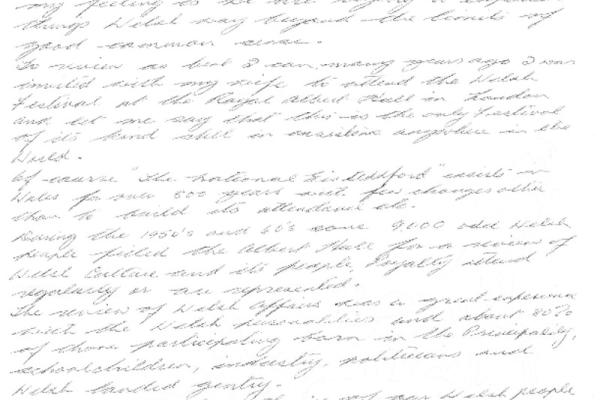 my feeling is we are
things Welsh way beyond the bounds of
good common sense.
To review as best I can, many years ago I was
invited with my wife to attend the Welsh
Festival at the Royal Albert Hall in London
and let me say that this is the only Festival
of its kind still in existence anywhere in the
World.
Of course "The National Eisteddfod" exists in
Wales for over 800 years with few changes other
than to build its attendance etc.
During the 1950's and 60's some 9000 odd Welsh
people filled the Albert Hall for a review of
Welsh Culture and its people, Royalty attend
regularly or are represented.
The review of Welsh Affairs was a great experience
with the Welsh personalities and about 80%
of those participating born in the Principality,
schoolchildren, industry, politicians and
Welsh landed gentry.
of our Welsh people